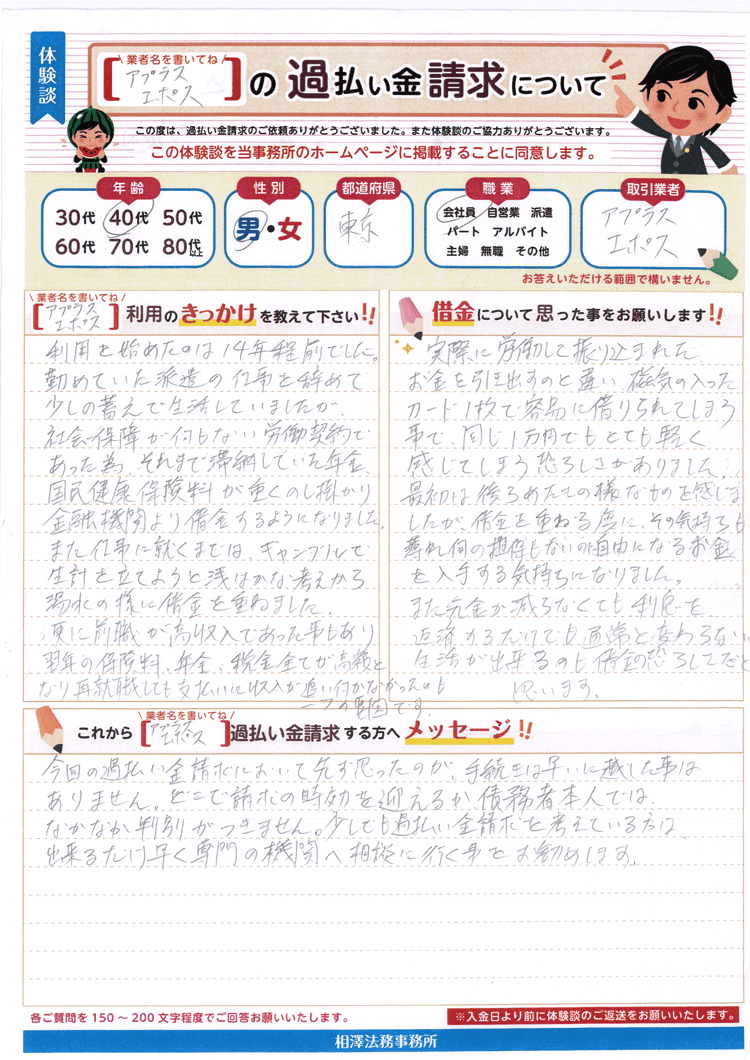 体験談
\ 業者名を書いてね /
[アプラス エポス] の 過払い金 請求について
この度は、過払い金請求のご依頼ありがとうございました。また体験談のご協力ありがとうございます。
この体験談を当事務所のホームページに掲載することに同意します。
年齢
30代 40代 50代
60代 70代 80代以上
性別
男・女
都道府県
東京
職業
会社員 自営業 派遣
パート アルバイト
主婦 無職 その他
取引業者
アプラス
エポス
お答えいただける範囲で構いません。
\ 業者名を書いてね /
[アプラス エポス] 利用のきっかけを教えて下さい!!
利用を始めたのは14年程前でした。
勤めていた派遣の仕事を辞めて
少しの蓄えで生活していましたが、
社会保障が何もない労働契約で
あった為、それまで滞納していた年金、
国民健康保険料が重くのし掛かり
金融機関より借金するようになりました。
また仕事に就くまでは、ギャンブルで
生計を立てようと浅はかな考えから
湯水の様に借金を重ねました。
更に前職が高収入であった事もあり
翌年の保険料、年金、税金全てが高額と
なり再就職しても支払いに収入が追い付かなかったのも
一つの要因です。
借金について思った事をお願いします!!
実際に労働して振り込まれた
お金を引き出すのと違い、磁気の入った
カード1枚で容易に借りられてしまう
事で、同じ1万円でもとても軽く
感じてしまう恐ろしさがありました。
最初は後ろめたさの様なものを感じま
したが、借金を重ねる度に、その気持ちも
薄れ何の担保もないのに自由になるお金
を入手する気持ちになりました。
また元金が減らなくても利息を
返済するだけでも通常と変わらない
生活が出来るのも借金の恐ろしさだと
思います。
\ 業者名を書いてね /
これから [アプラス エポス] 過払い金請求する方へ メッセージ!!
今回の過払い金請求において先ず思ったのが、手続きは早いに越した事は
ありません。どこで請求の時効を迎えるか、債務者本人では、
なかなか判別がつきません。少しでも過払い金請求を考えている方は、
出来るだけ早く専門の機関へ相談に行く事をお勧めします。
各ご質問を150～200文字程度でご回答お願いいたします。
※入金日より前に体験談のご返送をお願いいたします。
相澤法務事務所